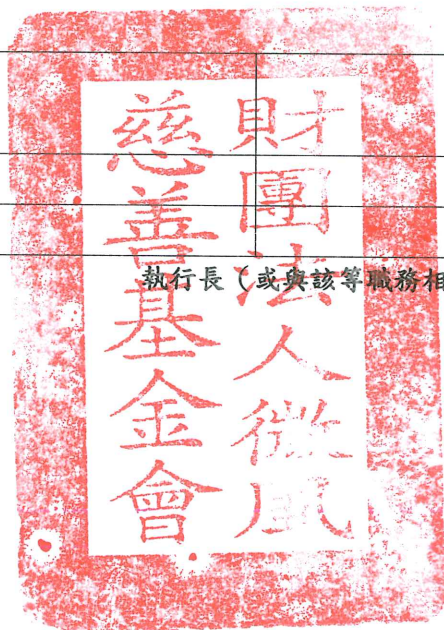 財團法人微風
慈善基金會
執行長（或與該等職務相